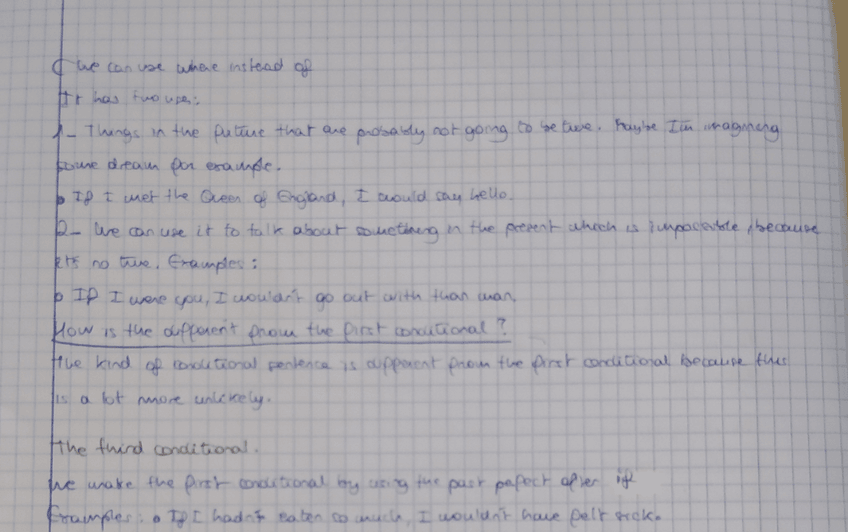 ( We can use where instead of
It has two uses:
1- Things in the future that are probably not going to be true. Maybe I'm imagining
some dream for example.
• If I met the Queen of England, I would say hello.
2- We can use it to talk about something in the present which is impossible, because
it's no true. Examples:
• If I were you, I wouldn't go out with than man.
How is the different from the first conditional?
The kind of conditional sentence is different from the first conditional because this
is a lot more unlikely.
The third conditional.
We make the first conditional by using the past perfect after if
Examples: • If I hadn't eaten so much, I wouldn't have felt sick.